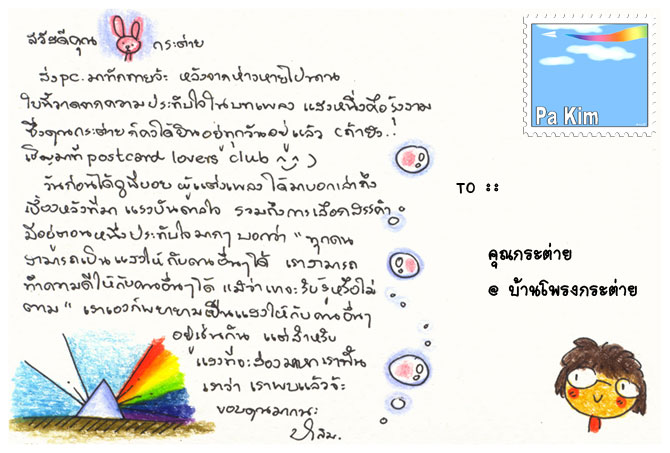 สวัสดีคุณ กระต่าย
ส่ง pc. มาทักทายจ้ะ หลังจากห่างหายไปนาน
ใบนี้วาดตามความประทับใจในบทเพลง แสงหนึ่งคือรุ้งงาม
ซึ่งคุณกระต่าย ก็คงได้ยินอยู่ทุกวันอยู่แล้ว (ถ้ายัง..
เชิญมาที่ postcard lovers' club ^_^ )
วันก่อนได้ดูพี่บอย ผู้แต่งเพลง ได้มาบอกเล่าถึง
เบื้องหลังที่มา แรงบันดาลใจ รวมถึงการเลือกสรรคำ
มีอยู่ตอนหนึ่งประทับใจมากๆ บอกว่า " ทุกคน
สามารถเป็นแสงให้กับคนอื่นๆได้ เราสามารถ
ทำความดีให้กับคนอื่นๆได้ แม้ว่าเขาจะรับรู้หรือไม่
ตาม " เราเองก็พยายามเป็นแสงให้กับคนอื่นๆ
อยู่เช่นกัน แต่สำหรับ
แสงที่จะส่องมาหาเรานั้น
เราว่า เราพบแล้วจ้ะ
ขอบคุณมากนะ
ป้าคิม.
Pa Kim
TO ::
คุณกระต่าย
@ บ้านโพรงกระต่าย